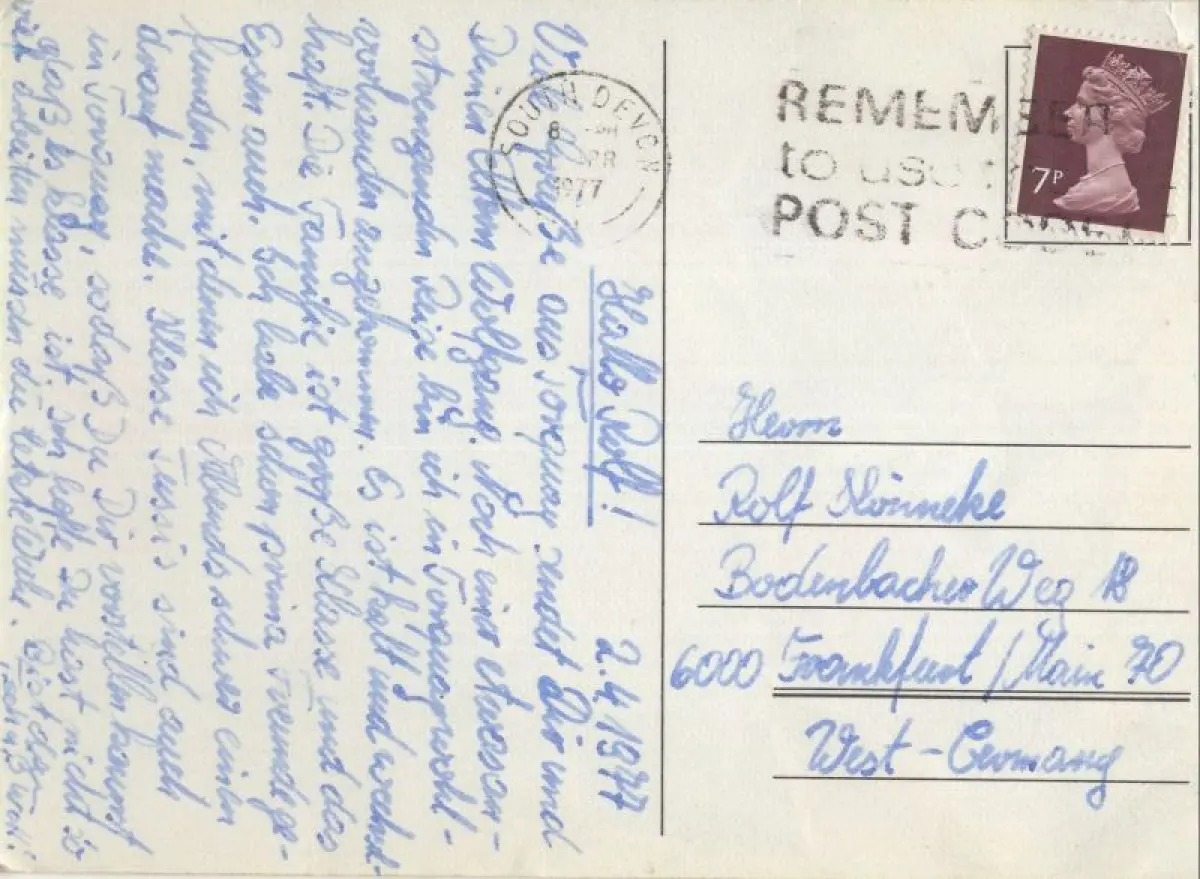 Hallo Rolf! 2.4.1977
Viele Grüße aus Torquay sendet Dir und
Deinen Eltern Wolfgang. Nach einer etwas an-
strengenden Reise bin ich in Torquay wohl-
vorhanden angekommen. Es ist kalt und wechsel-
haft. Die Familie ist große Klasse und das
Essen auch. Ich habe schon prima Freunde ge-
funden, mit denen ich Abends schwer einen
drauf mache. Klasse Tussis sind auch
in Torquay, sodaß Du Dir vorstellen kannst
daß es klasse ist. Ich hoffe Du hast nicht so
viel arbeiten müssen die letzte
SOUTH DEVON
8
APR
1977
REMEMBER
to use
POST
7P
Herrn
Rolf Könneke
Bodenbacher Weg 18
6000 Frankfurt/Main 70
West-Germany